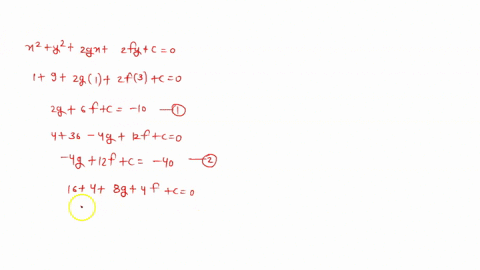 x² + y² + 2gx + 2fy + c = 0
1 + 9 + 2g(1) + 2f(3) + c = 0
2g + 6f + c = -10 —①
4 + 36 - 4g + 12f + c = 0
-4g + 12f + c = -40 —②
16 + 4 + 8g + 4f + c = 0